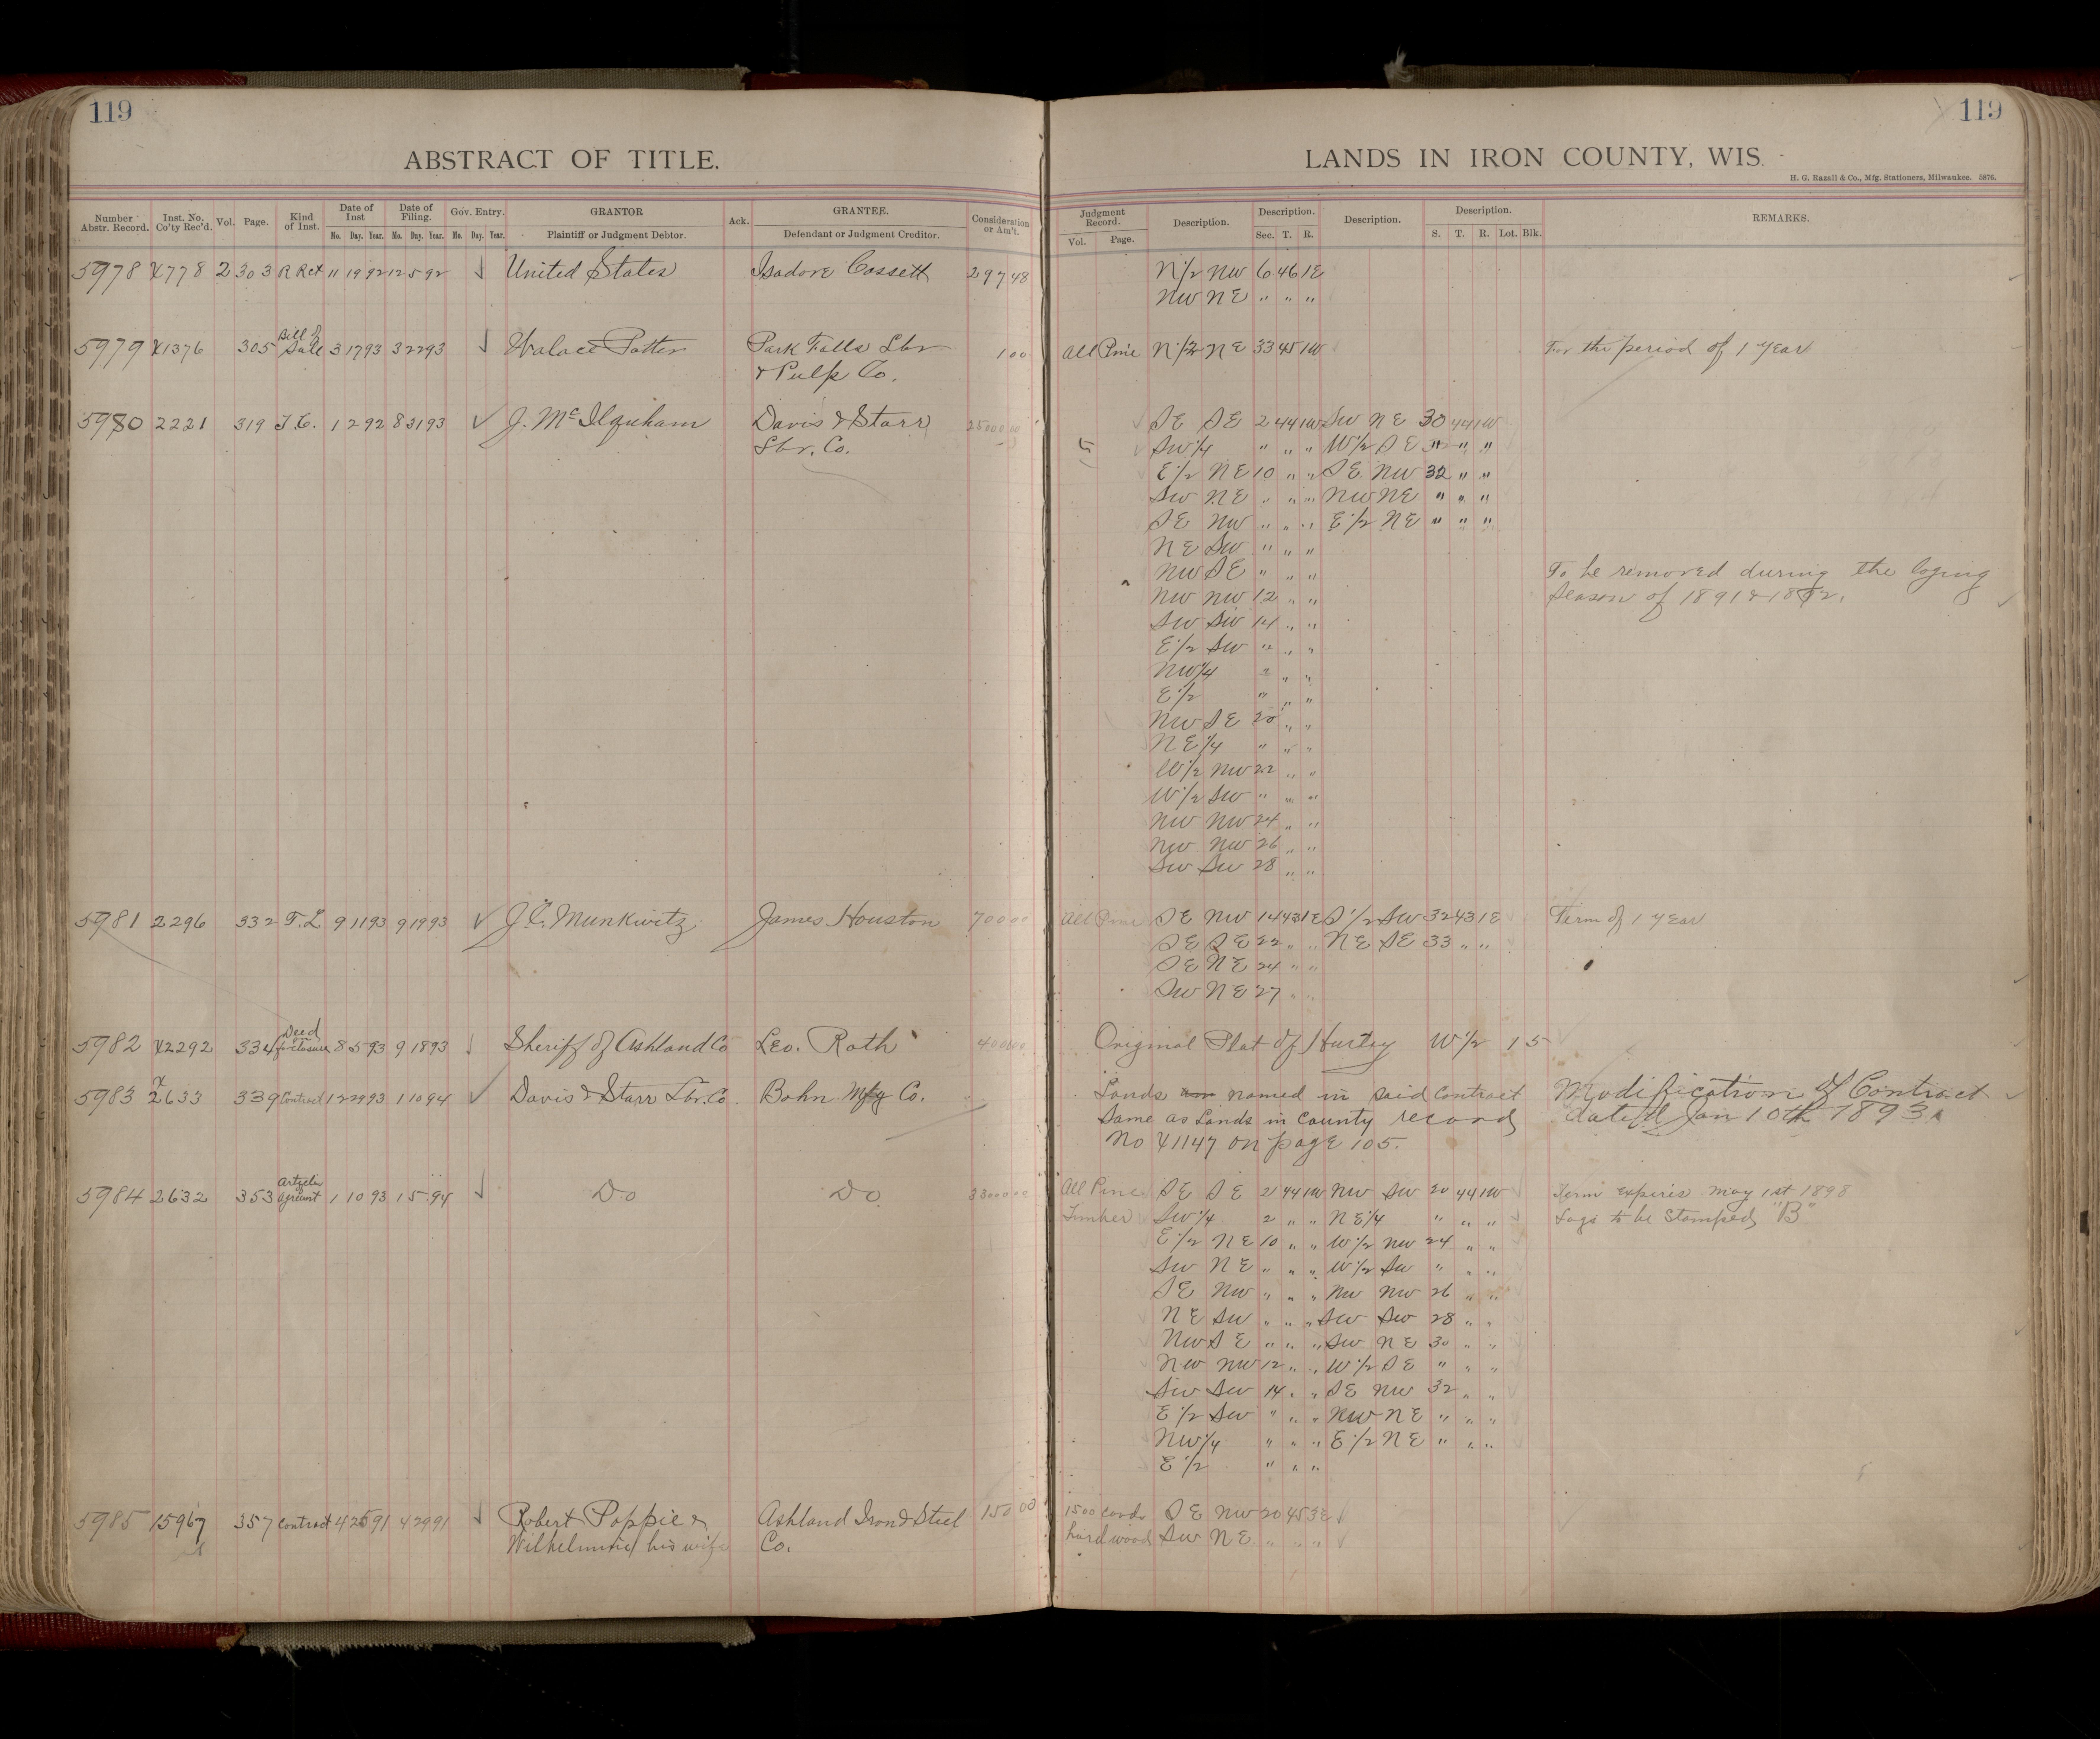 119
119
ABSTRACT OF TITLE.
LANDS IN IRON COUNTY, WIS.
H. G. Razall & Co., Mfg. Stationers, Milwaukee. 5876.
Number Abstr. Record. Inst. No. Co'ty Rec'd. Vol. Page. Kind of Inst. Date of Inst Mo. Day. Year. Date of Filing. Mo. Day. Year. Gov. Entry. Mo. Day. Year. GRANTOR Plaintiff or Judgment Debtor. Ack. GRANTEE. Defendant or Judgment Creditor. Consideration or Am't. Judgment Record. Vol. Page. Description. Description. Sec. T. R. Description. Description. S. T. R. Lot. Blk. REMARKS.
5978 X778 2 303 R Rct 11 19 92 12 5 92 United States Isadore Cossett 297 48 N 1/2 NW 6 46 1E
NW NE " " "
5979 X1376 305 Bill of Sale 3 17 93 3 22 93 Walace Potter Park Falls Lbr 1 00 All Pine N 1/2 NE 33 45 1W For the period of 1 year
& Pulp Co.
5980 2221 319 1 2 92 8 31 93 J. McIlquham Davis & Starr 25000 00 SE SE 2 44 1W SW NE 30 44 1W
Lbr. Co. SW 1/4 " " " W 1/2 SE " " "
E 1/2 NE 10 " " SE NW 32 " "
SW NE " " " NW NE " " "
SE NW " " " E 1/2 NE " " "
NE SW " " "
NW SE " " " To be removed during the loging
NW NW 12 " " Season of 1891 & 1892.
SW SW 14 " "
E 1/2 SW " " "
NW 1/4 " " "
E 1/2 " " "
NW SE 20 " "
NE 1/4 " " "
W 1/2 NW 22 " "
W 1/2 SW " " "
NW NW 24 " "
NW NW 26 " "
SW SW 28 " "
5981 2296 332 T.L 9 11 93 9 19 93 J. C. Munkwitz James Houston 700 00 All Pine SE NW 14 43 1E S 1/2 SW 32 43 1E Term of 1 year
SE SE 22 " " NE SE 33 " "
SE NE 24 " "
SW NE 27 " "
5982 X2292 334 Deed 8 5 93 9 18 93 Sheriff of Ashland Co Leo. Roth 400 00 Original Plat of Hurley W 1/2 15
5983 X2633 339 Contract 12 29 93 1 10 94 Davis & Starr Lbr. Co. Bohn Mfg Co. Lands named in said Contract Modification of Contract
Same as Lands in County record dated Jan 10th 1893.
No X1147 on page 105.
5984 2632 353 1 10 93 1 5 94 Do Do 33000 00 All Pine SE SE 2 44 1W NW SW 20 44 1W Term expires May 1st 1898
Timber SW 1/4 2 " " NE 1/4 " " " Logs to be Stamped "B"
E 1/2 NE 10 " " W 1/2 NW 24 " "
SW NE " " " W 1/2 SW " " "
SE NW " " " NW NW 26 " "
NE SW " " " SW SW 28 " "
NW SE " " " SW NE 30 " "
NW NW 12 " " W 1/2 SE " " "
SW SW 14 " " SE NW 32 " "
E 1/2 SW " " " NW NE " " "
NW 1/4 " " " E 1/2 NE " " "
E 1/2 " " "
5985 15967 357 Contract 4 25 91 4 29 91 Robert Poppie & Ashland Iron & Steel 150 00 1500 cords SE NW 20 45 3E
Wilhelmine his wife Co. hardwood SW NE " " "